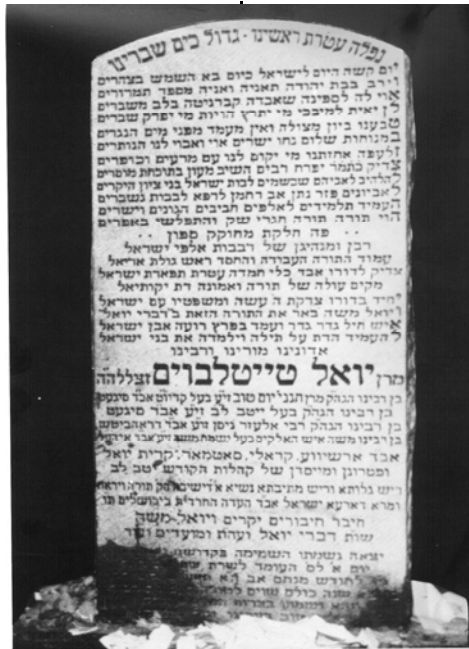 נפלה עטרת ראשינו - גדול כים שברינו
יום קשה היום לישראל כיום בא השמש בצהרים
וירב בבת יהודה תאניה ואניה מספד תמרורים
אוי לה לספינה שאבדה קברניטה בלב משברים
לן יאית למיבכי מי יתרץ הויות מי יפרק שברים
טבענו ביון מצולה ואין מעמד מפני מים הנגרים
במנוחות שלום נחו ישרים אוי ואבוי לנו הנותרים
זלעפה אחזתנו מי יקום לנו עם מרעים וכופרים
צדיק כתמר יפרח רבים השיב מעון בתוכחת מוסרים
להלהיב לאביהם שבשמים לבות ישראל בני ציון היקרים
לאביונים פזר נתן אב רחמן לרפא לבבות נשברים
העמיד תלמידים לאלפים חביבים הגונים וישרים
הוי תורה תורה חגרי שק והתפלשי באפרים
פה חלקת מחוקק ספון
רבן ומנהיגן של רבבות אלפי ישראל
עמוד התורה העבודה והחסד ראש גולת אריאל
צדיק לדורו אבד כלי חמדה עטרת תפארת ישראל
מקים עולה של תורה ואמונה דת יקותיאל
יחיד בדורו צדקת ה' עשה ומשפטיו עם ישראל
ויואל משה באר את התורה הזאת ב"דברי יואל"
איש חיל גדר גדר ועמד בפרץ רועה אבן ישראל
להעמיד הדת על תילה וילמדה את בני ישראל
אדונינו מורינו ורבינו
מרן יואל טייטלבוים זצללהה
בן רבינו הגהק מרן חנני' יום טוב זיע בעל קדיוט אבד סיגעט
בן רבינו הגהק בעל ייטב לב זיע אבד סיגעט
בן רבינו הגהק רבי אלעזר ניסן זיע אבד דראהביטש
בן רבינו משה איש האלקים בעל ישמח משה זיע אבד אוהעל
אבד ארשיווע, קראלי, סאטמאר, קרית יואל
ופטרונן ומייסדן של קהלות הקודש יטב לב
ריש גלותא וריש מתיבתא נשיא
ומרא דארעא ישראל אבד העדה החרדית בירושלים תו
חיבר חיבורים יקרים ויואל משה
שות דברי יואל ועהת ומועדים ועוד
יצאה נשמתו
יום א לס העומד לשרת
לחודש מנחם אב
שנה כולם שוים